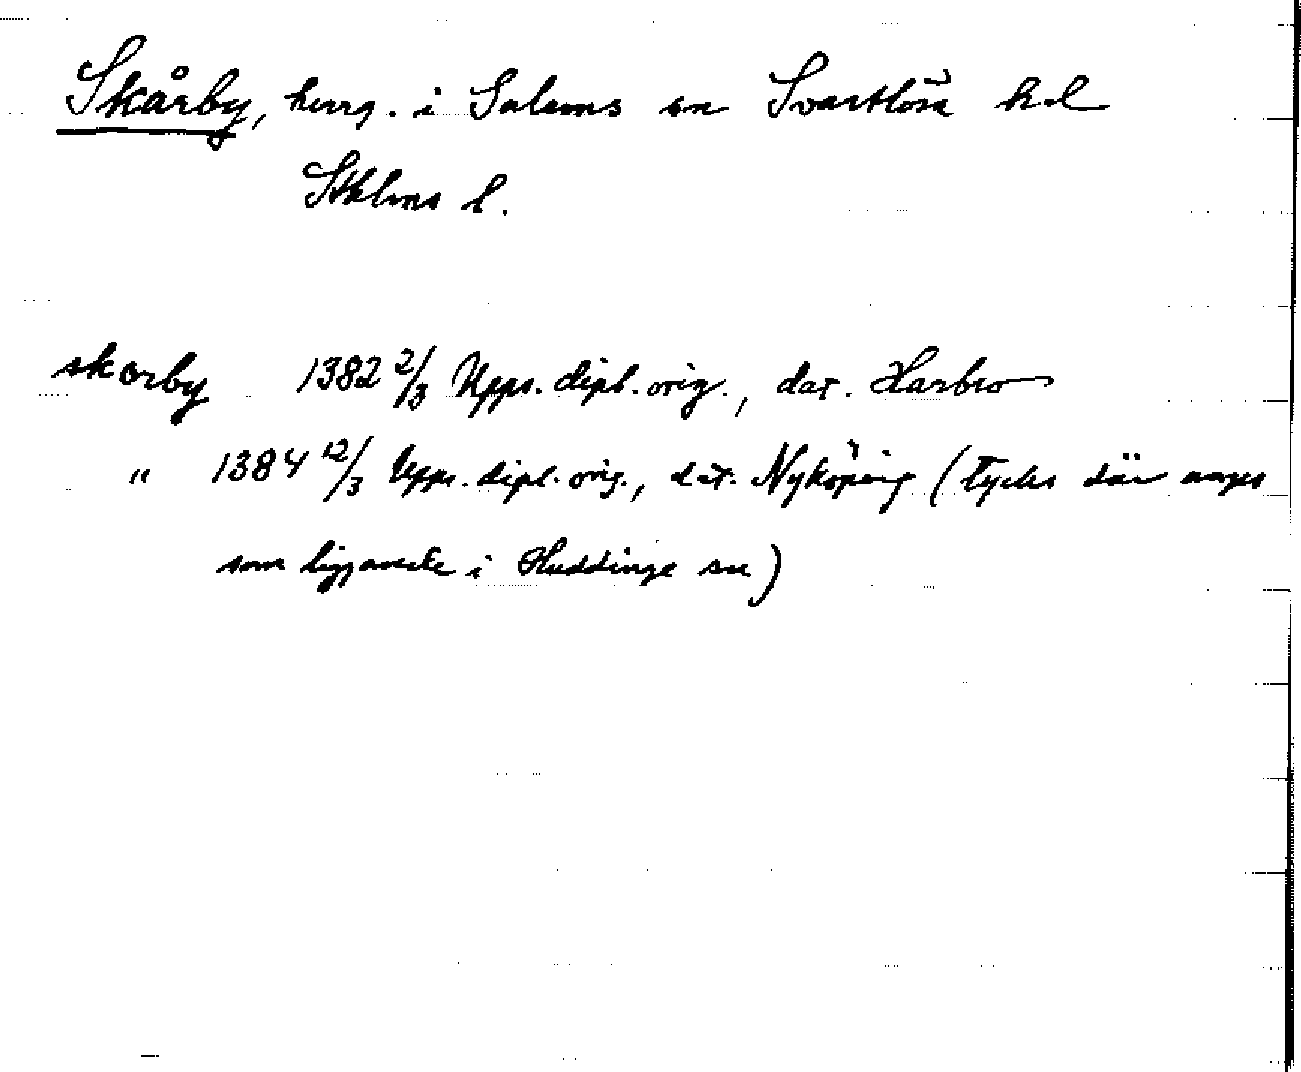 Skårby, herrg. i Salems sn Svartlösa hd
Sthlms l.
skorby 1382 2/3 Upps. dipl. orig., dat. Harbro
" 1384 12/3 Upps. dipl. orig., dat. Nyköping (tycks där anges
som liggande i Huddinge sn)